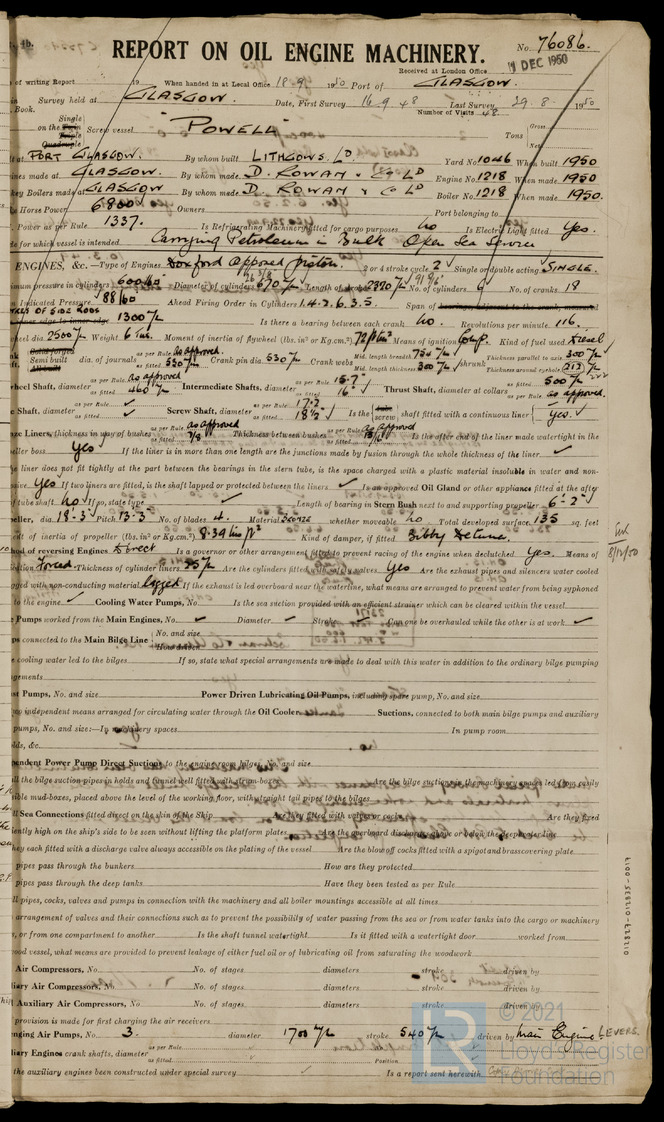 4b.
REPORT ON OIL ENGINE MACHINERY.
No. 76086.
11 DEC 1950
Received at London Office
of writing Report 19 When handed in at Local Office 18.9. 1950 Port of GLASGOW.
in Survey held at GLASGOW. Date, First Survey 16.9.48 Last Survey 29.8. 1950
Book. Number of Visits 48
Single
on the Twin Screw vessel "POWELL" Tons Gross
Triple
Quadruple Net
at PORT GLASGOW. By whom built LITHGOWS. LD. Yard No. 1046 When built 1950
ines made at GLASGOW. By whom made D. ROWAN & CO LD Engine No. 1218 When made 1950
key Boilers made at GLASGOW By whom made D. ROWAN & CO LD Boiler No. 1218 When made 1950.
Horse Power 6800 Owners Port belonging to
Power as per Rule 1337. Is Refrigerating Machinery fitted for cargo purposes No Is Electric Light fitted Yes.
de for which vessel is intended Carrying Petroleum in Bulk Open Sea Service
ENGINES, &c.—Type of Engines Doxford opposed piston. 2 or 4 stroke cycle 2 Single or double acting SINGLE.
imum pressure in cylinders 600 lb Diameter of cylinders 670 m/m Length of stroke 2320 m/m No. of cylinders 6 No. of cranks 18
Indicated Pressure 88 lb Ahead Firing Order in Cylinders 1.4.2.6.3.5. Span of bearings, adjacent to the crank, measured
OF SIDE RODS
inner edge to inner edge 1300 m/m Is there a bearing between each crank No. Revolutions per minute 116.
wheel dia. 2500 m/m Weight 6 Tns. Moment of inertia of flywheel (lbs. in² or Kg.cm.²) Means of ignition Comp. Kind of fuel used Diesel
Solid forged
Semi built dia. of journals as per Rule as approved. as fitted 530 m/m Crank pin dia. 530 m/m Crank webs Mid. length breadth 754 m/m Mid. length thickness 300 m/m shrunk Thickness parallel to axis 300 m/m
All built Thickness around eyehole 212 m/m
wheel Shaft, diameter as per Rule as approved as fitted 460 m/m Intermediate Shafts, diameter as per Rule 15.7" as fitted 16" Thrust Shaft, diameter at collars as fitted 500 m/m as per Rule as approved.
e Shaft, diameter as per Rule as fitted Screw Shaft, diameter as per Rule 17.2 as fitted 18½" Is the tube screw shaft fitted with a continuous liner Yes.
ze Liners, thickness in way of bushes as per Rule as approved as fitted 7/8 Thickness between bushes as per Rule as approved as fitted Is the after end of the liner made watertight in the
eller boss Yes If the liner is in more than one length are the junctions made by fusion through the whole thickness of the liner
e liner does not fit tightly at the part between the bearings in the stern tube, is the space charged with a plastic material insoluble in water and non-
sive Yes If two liners are fitted, is the shaft lapped or protected between the liners Is an approved Oil Gland or other appliance fitted at the after
f tube shaft No If so, state type Length of bearing in Stern Bush next to and supporting propeller 6'-2"
peller, dia. 18'-3" Pitch 13'-3" No. of blades 4. Material Bronze whether moveable No Total developed surface 135 sq. feet
nt of inertia of propeller (lbs. in² or Kg.cm.²) Kind of damper, if fitted Bibby Detuner.
hod of reversing Engines Direct Is a governor or other arrangement fitted to prevent racing of the engine when declutched Yes. Means of
ation Forced Thickness of cylinder liners 35 m/m Are the cylinders fitted with safety valves Yes Are the exhaust pipes and silencers water cooled
gged with non-conducting material lagged If the exhaust is led overboard near the waterline, what means are arranged to prevent water from being syphoned
to the engine Cooling Water Pumps, No. Is the sea suction provided with an efficient strainer which can be cleared within the vessel
Pumps worked from the Main Engines, No. Diameter Stroke Can one be overhauled while the other is at work
ps connected to the Main Bilge Line No. and size
How driven
e cooling water led to the bilges If so, state what special arrangements are made to deal with this water in addition to the ordinary bilge pumping
gements
st Pumps, No. and size Power Driven Lubricating Oil Pumps, including spare pump, No. and size
wo independent means arranged for circulating water through the Oil Cooler Suctions, connected to both main bilge pumps and auxiliary
pumps, No. and size:—In machinery spaces In pump room
lds, &c.
pendent Power Pump Direct Suctions to the engine room bilges, No. and size
ll the bilge suction pipes in holds and tunnel well fitted with strum-boxes Are the bilge suctions in the machinery spaces led from easily
ible mud-boxes, placed above the level of the working floor, with straight tail pipes to the bilges
ll Sea Connections fitted direct on the skin of the Ship Are they fitted with valves or cocks Are they fixed
iently high on the ship's side to be seen without lifting the platform plates Are the overboard discharges above or below the deep water line
hey each fitted with a discharge valve always accessible on the plating of the vessel Are the blow off cocks fitted with a spigot and brass covering plate
pipes pass through the bunkers How are they protected
pipes pass through the deep tanks Have they been tested as per Rule
ll pipes, cocks, valves and pumps in connection with the machinery and all boiler mountings accessible at all times
arrangement of valves and their connections such as to prevent the possibility of water passing from the sea or from water tanks into the cargo or machinery
s, or from one compartment to another Is the shaft tunnel watertight Is it fitted with a watertight door worked from
ood vessel, what means are provided to prevent leakage of either fuel oil or of lubricating oil from saturating the woodwork
Air Compressors, No. No. of stages diameters stroke driven by
liary Air Compressors, No. No. of stages diameters stroke driven by
Auxiliary Air Compressors, No. No. of stages diameters stroke driven by
provision is made for first charging the air receivers
enging Air Pumps, No. 3. diameter 1700 m/m stroke 540 m/m driven by Main Engine LEVERS.
liary Engines crank shafts, diameter as per Rule as fitted No. Position
the auxiliary engines been constructed under special survey Is a report sent herewith
8/12/50
010827-010835-0017
© 2021
LR
Lloyd's Register
Foundation